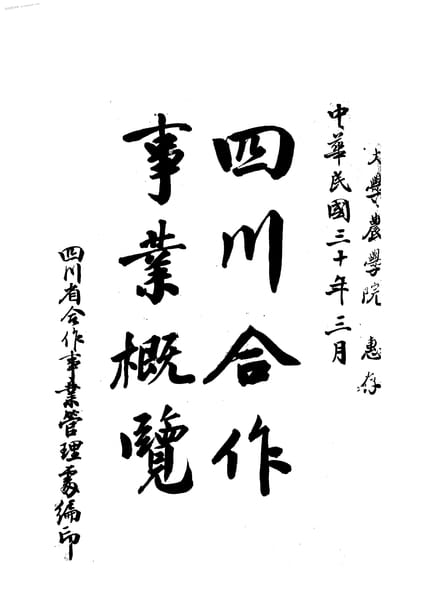 大學農學院 惠存
中華民國三十年三月
四川合作
事業概覽
四川省合作事業管理處編印